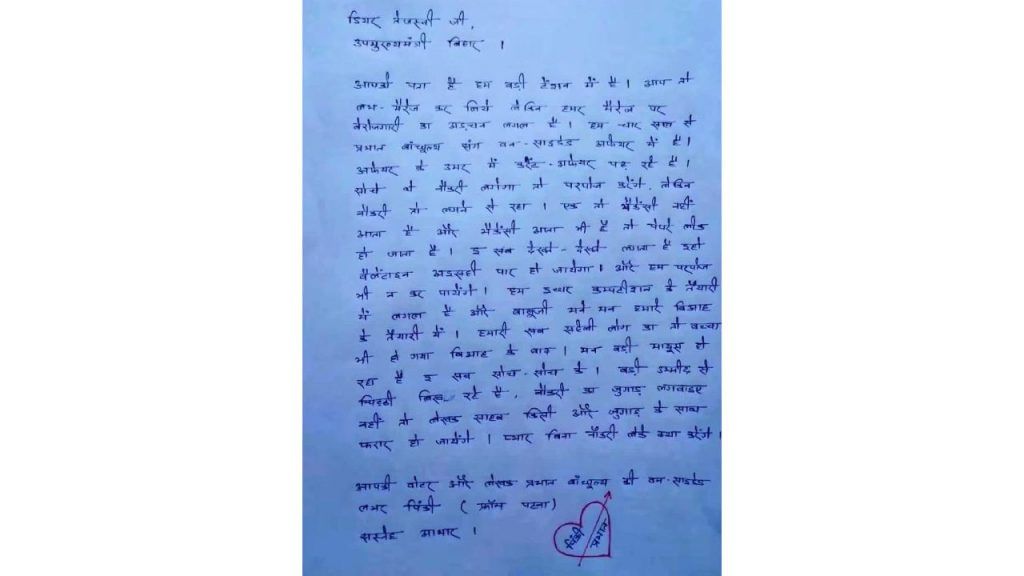 डियर तेजस्वी जी,
उपमुख्यमंत्री बिहार ।
आपको पता है हम बड़ी टेंशन में है । आप तो
लभ-मैरेज कर लिये लेकिन हमर मैरेज पर
बेरोजगारी का अड़चन लगल है । हम चार साल से
प्रभात बाँधुल्य संग वन-साइडेड अफेयर में है ।
अफेयर के उमर में करेंट-अफेयर पढ़ रहे है ।
सोचे थे नौकरी लगेगा तो परपोज करेंगे, लेकिन
नौकरी तो लगने से रहा । एक तो भैकेंसी नहीं
आता है और भैकेंसी आता भी है तो पेपरे लीक
हो जाता है । इ सब देखते-देखते लगता है इहो
वैलेंटाइन अइसही पार हो जायेगा । और हम परपोज
भी न कर पायेंगे । हम इधर कम्पटीशन के तैयारी
में लगल है और बाबूजी मने मन हमारे बिआह
के तैयारी में । हमारी सब सहेली लोग का तो बच्चा
भी हो गया बिआह के बाद । मन बड़ी मायूस हो
रहा है इ सब सोच-सोच के । बड़ी उम्मीद से
चिट्ठी लिख रहे है, नौकरी का जुगाड़ लगवाइए
नहीं तो लेखक साहब किसी और जुगाड़ के साथ
फरार हो जायेंगे । प्यार बिना नौकरी लेके क्या करेंगे ।
आपकी वोटर और लेखक प्रभात बाँधुल्य की वन-साइडेड
लभर पिंकी ( फ्रॉम पटना )
सस्नेह आभार ।
पिंकी
प्रभात